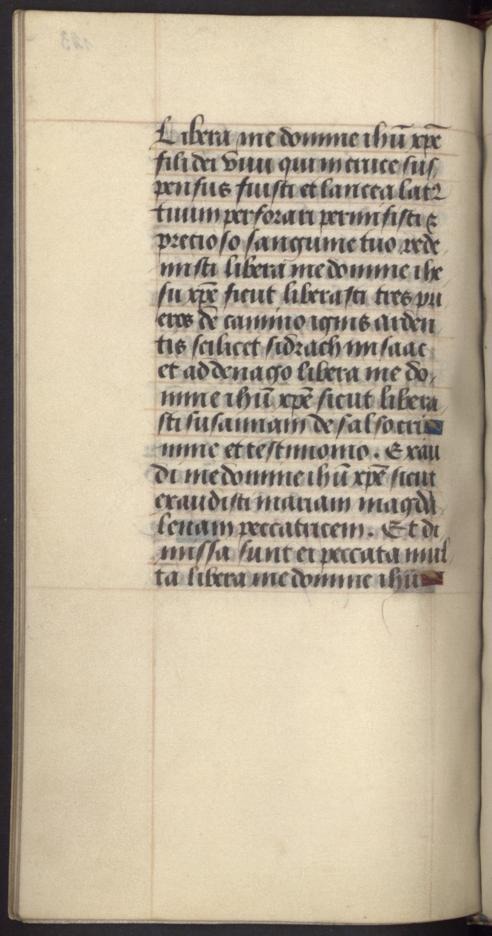 Libera me domine ihũ xpẽ
fili dei viui qui in cruce sus
pensus fuisti et lancea latꝛ
tuum perforari permisisti ⁊
precioso sanguine tuo rede
misti libera me domine ihe
su xpẽ sicut liberasti tres pu
eros de camino ignis arden
tis scilicet sidrach misaac
et addenago libera me do
mine ihũ xpẽ sicut libera
sti susannam de falso cri
mine et testimonio. Exau
di me domine ihũ xpẽ sicut
exaudisti mariam magda
lenam peccatricem. Et di
missa sunt ei peccata mul
ta libera me domine ihũ